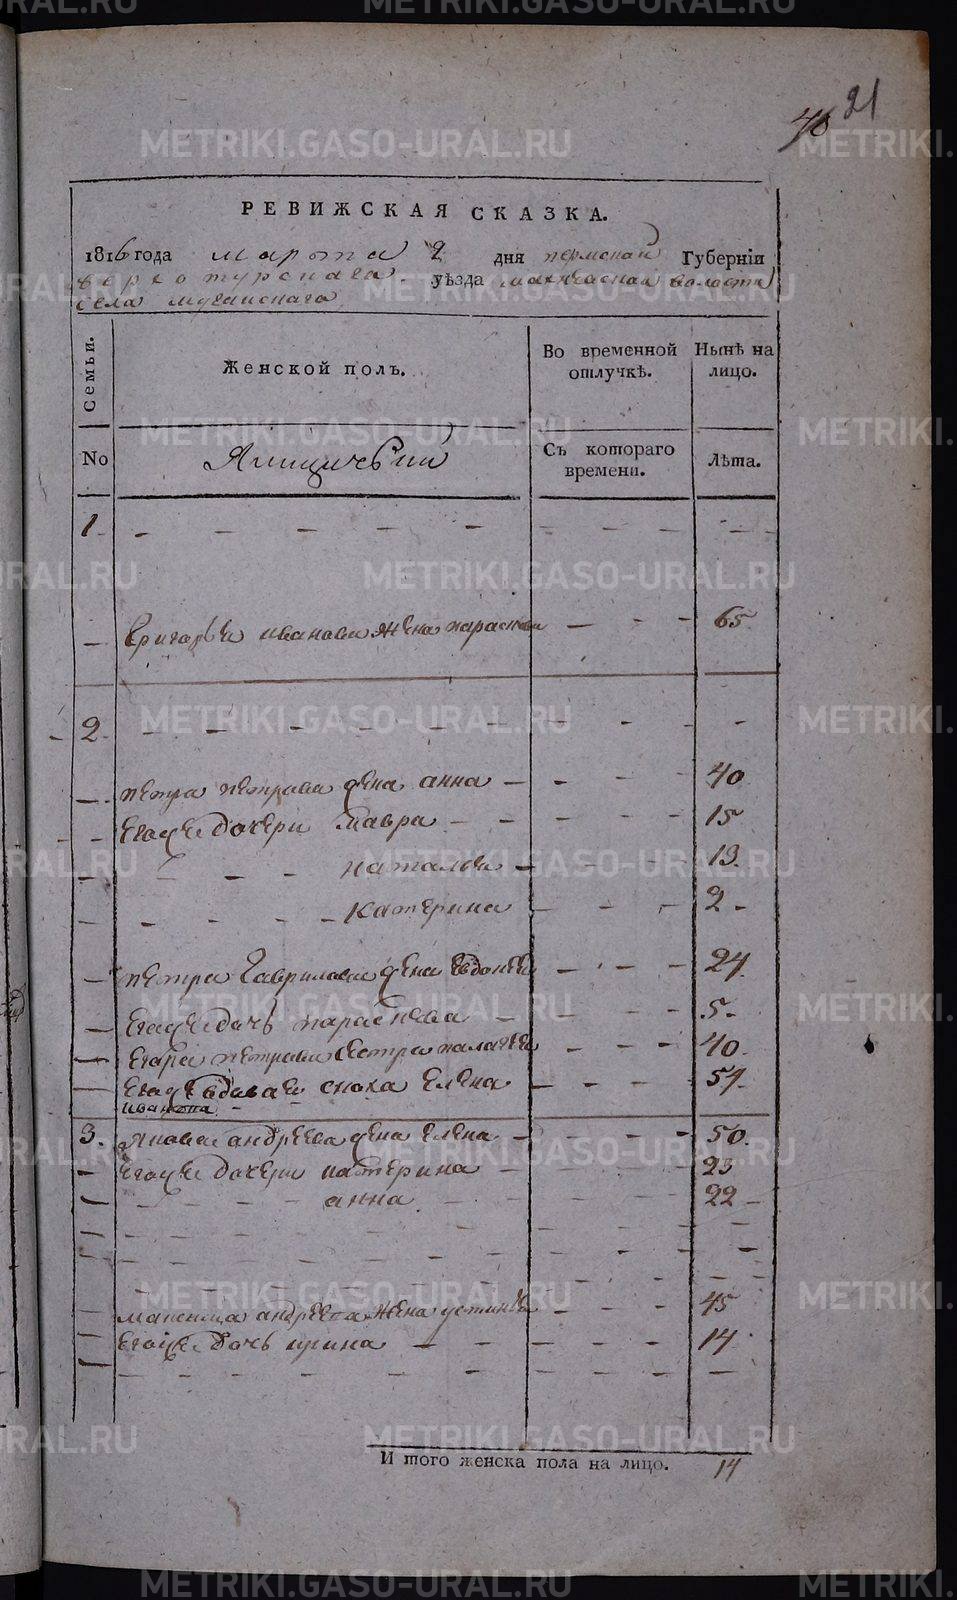 40 21
РЕВИЖСКАЯ СКАЗКА.
1816 года марта 2 дня пермской Губерніи
верхотурскаго уѣзда махневской волости
села мугайскаго
Семьи.
Женской полъ.
Во временной отлучкѣ.
Нынѣ на лицо.
No
Ямщичьи
Съ котораго времени.
Лѣта.
1. - - - - - - - - -
- григорья иванова жена парасковья - - - 65
2. - - - - - - - - -
- петра петрова жена анна - - - - 40
- - егоже дочери мавра - - - - - 15
- - - - наталья - - - - 13
- - - - - катерина - - - 2 -
- петра гаврилова жена евдокея - - - - 24
- егоже дочь парасковья - - - - 5 -
- егоръ петрова сестра палагея - - - 40
- егожъ вдовая сноха елена - - - - 51
иванова -
3. якова андреева жена елена - - - - 50.
- егоже дочери катерина - - - - 23
- - - - - анна - - - - 22 -
- - - - - - - - - -
- - - - - - - - - -
- максима андреева жена устинья - - - 45
- егоже дочь ирина - - - - - - 14
- - - - - - - - - -
И того женска пола на лицо. 14
METRIKI.GASO-URAL.RU